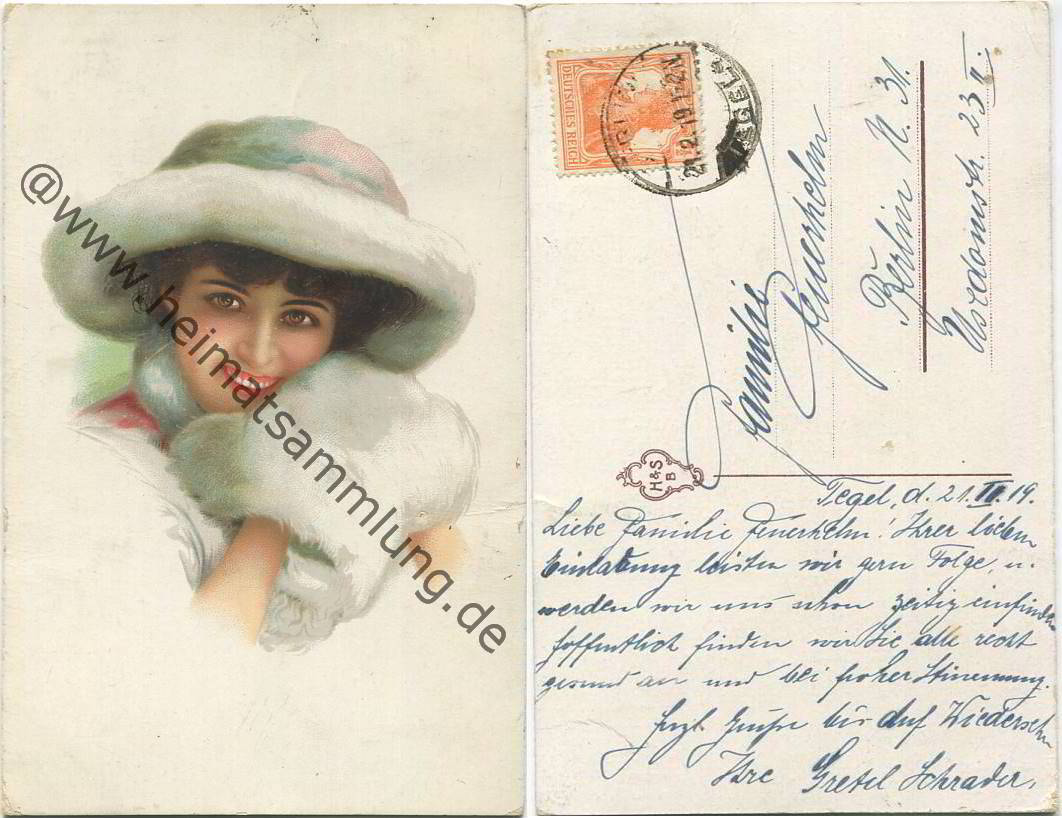 @www.heimatsammlung.de
DEUTSCHES REICH
21.2.19.1-2N
Familie
Feuerhelm
Berlin N. 31.
Usedomstr. 23 II.
H&S
B
Tegel, d. 21. II. 19.
Liebe Familie Feuerhelm! Ihrer lieben
Einladung leisten wir gern Folge, u.
werden wir uns schon zeitig einfinden
hoffentlich finden wir Sie alle recht
gesund an und bei froher Stimmung.
Herzl. Grüße bis auf Wiedersehn
Ihre Gretel Schrader.